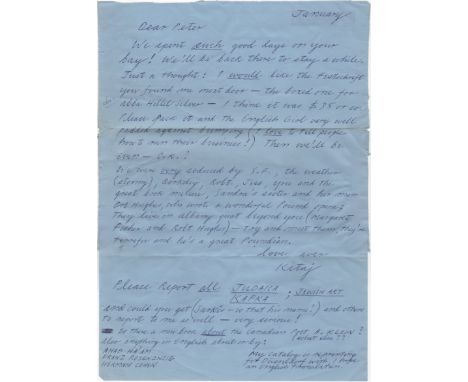 January
Dear Peter
We spent such good days on your
bay! We'll be back there to stay a while.
Just a thought: I would like the Festschrift
you found me next door – the boxed one for
Abba Hillel Silver – I think it was $35 or so.
Please pack it and the English Girl very well
padded against bumping (I love to tell people
how to run their business!) Then we'll be
even – O.K.?
We were very seduced by S.F., the weather
(stormy), Berkeley, Robt., Jess, you and the
great book milieu, Sandra's sister and her man
Robt Hughes, who wrote a wonderful Pound opera;
They live on Albany just beyond you (Margaret
Fisher and Robt Hughes) – try and meet them, they're
terrific and he's a great Poundian.
Love, ever
Kitaj
Please Report all JUDAICA ; JEWISH ART
KAFKA
and could you get (Tarkis – is that his name?) and others
to report to me as well – very serious!
Is there a new book about the Canadian Poet A. KLEIN?
(what else??
Also anything in English about or by:
AHAD HA'AM
FRANZ ROSENZWEIG
HERMANN COHEN
My catalog is reprinting
for Düsseldorf with I hope
an English translation